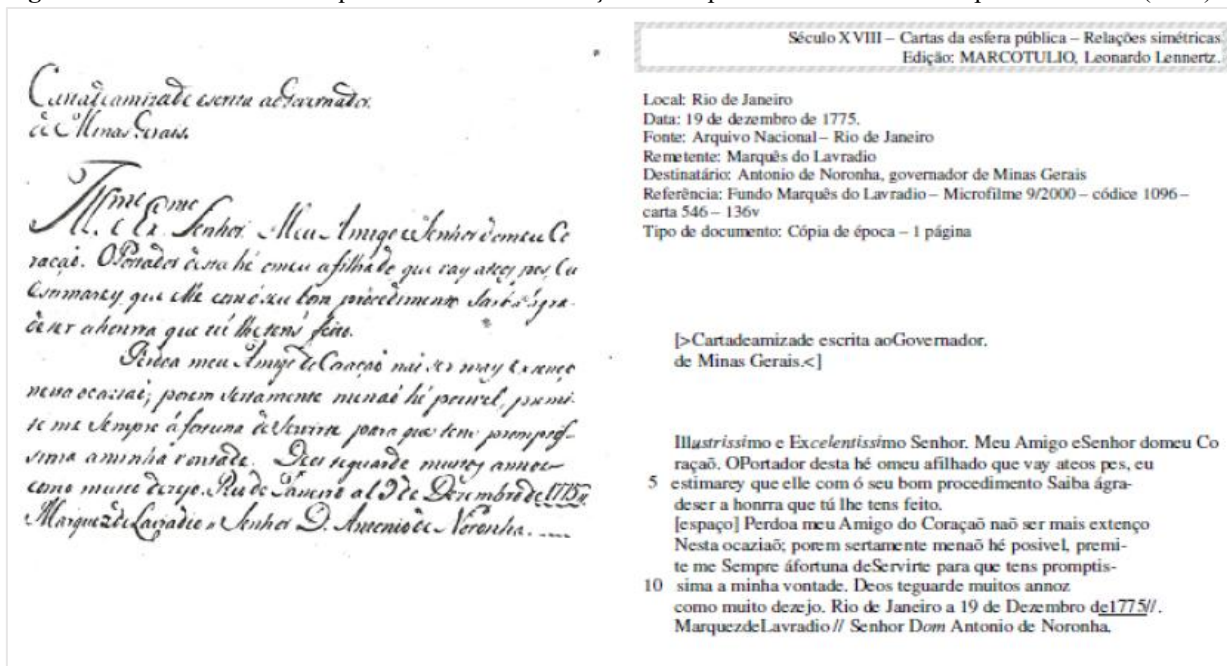 Cartadeamizade escrita aoGovernador.
de Minas Gerais.
Ill.mo e Ex.mo Senhor. Meu Amigo eSenhor domeu Co
raçaõ. OPortador desta hé omeu afilhado que vay ateos pes, Eu
estimarey que elle com ó seu bom procedimento Saiba ágra-
deser ahonrra que tú lhe tens feito.
Perdoa meu Amigo do Coraçaõ naõ ser may extenço
nesta ocaziaõ; porem sertamente menaõ hé posivel, premi-
te me Sempre á fortuna deServirte para que tens promptis-
sima aminha vontade. Deos teguarde muitos annoz
como muito dezejo. Rio de Janeiro a 19 de Dezembro de1775//.
MarquezdeLavradio// Senhor D. Antonio de Noronha.
Século XVIII – Cartas da esfera pública – Relações simétricas
Edição: MARCOTULIO, Leonardo Lennertz.
Local: Rio de Janeiro
Data: 19 de dezembro de 1775.
Fonte: Arquivo Nacional – Rio de Janeiro
Remetente: Marquês do Lavradio
Destinatário: Antonio de Noronha, governador de Minas Gerais
Referência: Fundo Marquês do Lavradio – Microfilme 9/2000 – códice 1096 –
carta 546 – 136v
Tipo de documento: Cópia de época – 1 página
[>Cartadeamizade escrita aoGovernador.
de Minas Gerais.<]
Illustrissimo e Excelentissimo Senhor. Meu Amigo eSenhor domeu Co
raçaõ. OPortador desta hé omeu afilhado que vay ateos pes, eu
5 estimarey que elle com ó seu bom procedimento Saiba ágra-
deser a honrra que tú lhe tens feito.
[espaço] Perdoa meu Amigo do Coraçaõ naõ ser mais extenço
Nesta ocaziaõ; porem sertamente menaõ hé posivel, premi-
te me Sempre áfortuna deServirte para que tens promptis-
10 sima a minha vontade. Deos teguarde muitos annoz
como muito dezejo. Rio de Janeiro a 19 de Dezembro de1775//.
MarquezdeLavradio// Senhor Dom Antonio de Noronha.